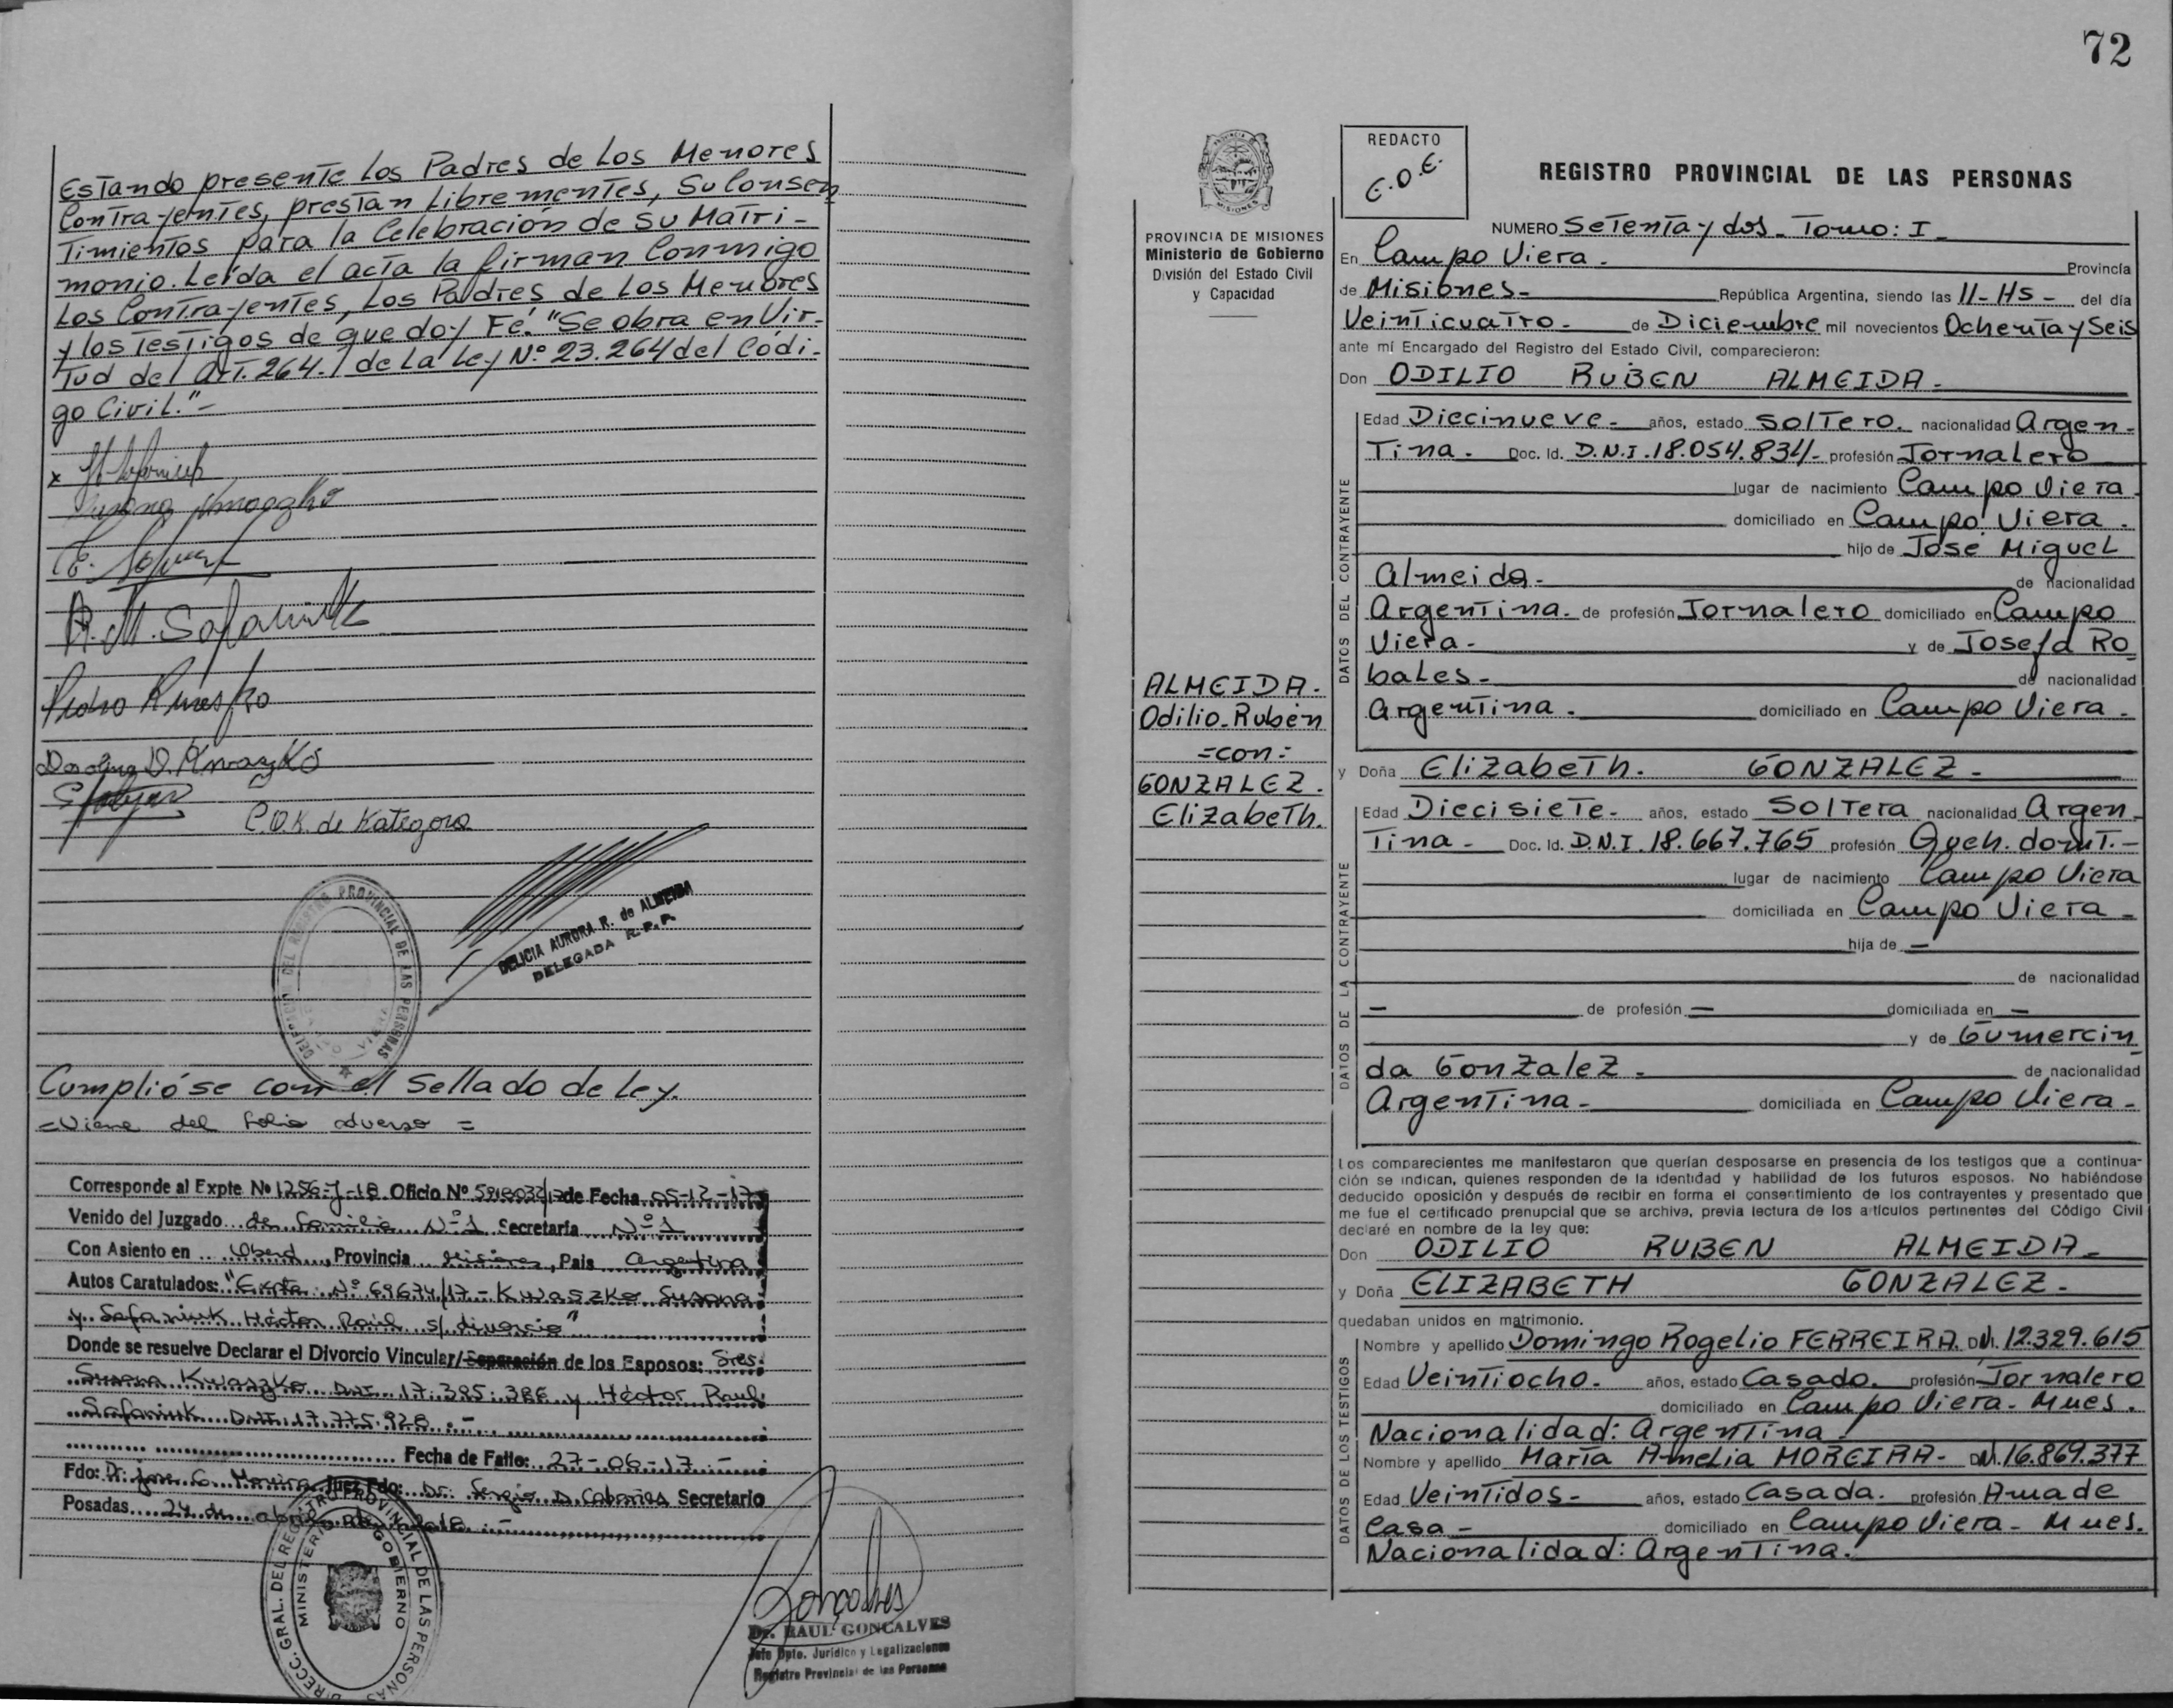 Estando presente los Padres de los Menores
Contrayentes, prestan libre mentes, Su Consen
Timientos para la Celebración de Su Matri-
monio. Leída el acta la firman Conmigo
Los Contrayentes, Los Padres de los Menores
y los testigos de que doy Fé. "Se obra en Vir-
tud del art. 264. / de la Ley Nº 23.264 del Códi-
go Civil."-
x
Susana Kwaszko
A. M. Safaniuk
Pedro
V. Kwaszko
C.O.K. de Kategora
DELEGACION DEL REGISTRO PROVINCIAL DE LAS PERSONAS
DELICIA AURORA R. de ALMEIDA
DELEGADA R.P.P.
Cumplióse con el sellado de ley.
=Viene del folio adverso=
Corresponde al Expte Nº 1256-J-18 Oficio Nº de Fecha 05-12-17
Venido del Juzgado de Familia Nº1 Secretaría Nº1
Con Asiento en Oberá, Provincia Misiones, Pais Argentina
Autos Caratulados: "Expte Nº 69674/17 - Kwaszko Susana
y Safaniuk Héctor Raúl s/ divorcio"
Donde se resuelve Declarar el Divorcio Vincular/Separación de los Esposos: Sres.
Susana Kwaszko DNI 17.385.386 y Héctor Raúl
Safaniuk DNI 17.775.928.-
Fecha de Fallo: 27-06-17.-
Fdo: Dr. Jose G. Moreira Juez Fdo: Dr. Sergio D. Cabañas Secretario
Posadas 24 de abril de 2018.-
DIRECC. GRAL. DEL REGISTRO PROVINCIAL DE LAS PERSONAS
MINISTERIO GOBIERNO
Dr. RAUL GONCALVES
Jefe Dpto. Jurídico y Legalizaciones
Registro Provincial de las Personas
72
PROVINCIA DE MISIONES
Ministerio de Gobierno
División del Estado Civil
y Capacidad
ALMEIDA.
Odilio Rubén
=con=
GONZALEZ.
Elizabeth.
REDACTO
E.O.E.
REGISTRO PROVINCIAL DE LAS PERSONAS
NUMERO Setenta y dos - Tomo: I -
En Campo Viera. Provincia
de Misiones- República Argentina, siendo las 11-Hs- del día
Veinticuatro- de Diciembre mil novecientos Ochenta y Seis
ante mí Encargado del Registro del Estado Civil, comparecieron:
Don ODILIO RUBEN ALMEIDA-
DATOS DEL CONTRAYENTE
Edad Diecinueve- años, estado Soltero. nacionalidad Argen-
Tina. Doc. Id. D.N.I. 18.054.834- profesión Jornalero
lugar de nacimiento Campo Viera.
domiciliado en Campo Viera.
hijo de José Miguel
Almeida- de nacionalidad
Argentina. de profesión Jornalero domiciliado en Campo
Viera- y de Josefa Ro
bales- de nacionalidad
Argentina. domiciliado en Campo Viera.
y Doña Elizabeth. GONZALEZ-
DATOS DE LA CONTRAYENTE
Edad Diecisiete- años, estado Soltera nacionalidad Argen-
Tina- Doc. Id. D.N.I. 18.667.765 profesión Queh. domt.-
lugar de nacimiento Campo Viera
domiciliada en Campo Viera-
hija de —
de nacionalidad
— de profesión — domiciliada en —
y de Gumercin
da Gonzalez- de nacionalidad
Argentina- domiciliada en Campo Viera-
Los comparecientes me manifestaron que querían desposarse en presencia de los testigos que a continua-
ción se indican, quienes responden de la identidad y habilidad de los futuros esposos. No habiéndose
deducido oposición y después de recibir en forma el consentimiento de los contrayentes y presentado que
me fue el certificado prenupcial que se archiva, previa lectura de los artículos pertinentes del Código Civil
declaré en nombre de la ley que:
Don ODILIO RUBEN ALMEIDA-
y Doña ELIZABETH GONZALEZ-
quedaban unidos en matrimonio.
DATOS DE LOS TESTIGOS
Nombre y apellido Domingo Rogelio FERREIRA. DNI. 12.329.615
Edad Veintiocho- años, estado Casado. profesión Jornalero
domiciliado en Campo Viera- Mnes.
Nacionalidad: Argentina.
Nombre y apellido María Amelia MOREIRA- DNI. 16.869.377
Edad Veintidos- años, estado Casada. profesión Ama de
Casa- domiciliado en Campo Viera- Mnes.
Nacionalidad: Argentina.